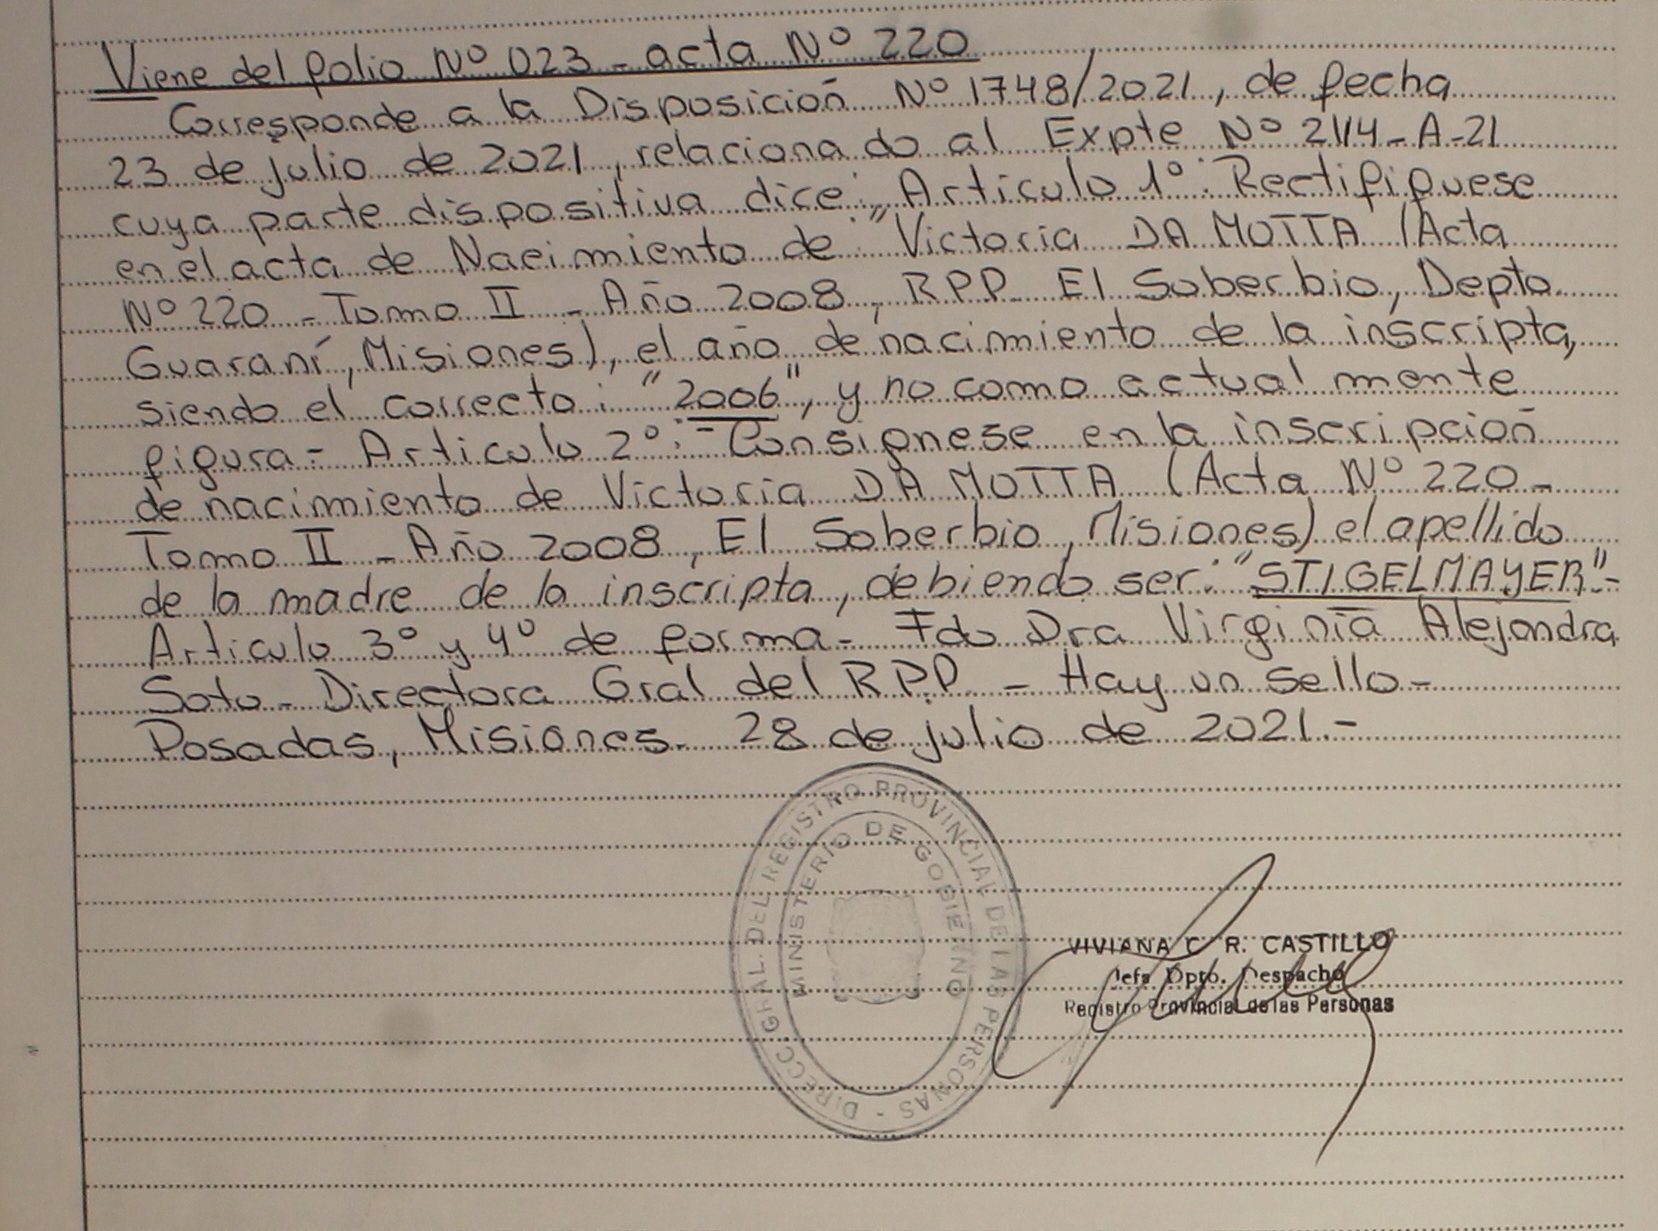 Viene del folio Nº 023 - acta Nº 220
Corresponde a la Disposición Nº 1748/2021, de fecha
23 de julio de 2021, relacionado al Expte Nº 2114-A-21
cuya parte dispositiva dice: Artículo 1º: Rectifíquese
en el acta de Nacimiento de "Victoria DA MOTTA (Acta
Nº 220 - Tomo II - Año 2008, RPP El Soberbio, Depto.
Guaraní, Misiones), el año de nacimiento de la inscripta,
siendo el correcto: "2006", y no como actualmente
figura - Artículo 2º: - Consígnese en la inscripción
de nacimiento de Victoria DA MOTTA (Acta Nº 220 -
Tomo II - Año 2008, El Soberbio, Misiones) el apellido
de la madre de la inscripta, debiendo ser: "STIGELMAYER" -
Artículo 3º y 4º de forma - Fdo Dra Virginia Alejandra
Soto - Directora Gral del RPP - Hay un sello -
Posadas, Misiones. 28 de julio de 2021. -
DIRECC. GRAL. DEL REGISTRO PROVINCIAL DE LAS PERSONAS -
MINISTERIO DE GOBIERNO
VIVIANA C. R. CASTILLO
Jefa Dpto. Despacho
Registro Provincial de las Personas